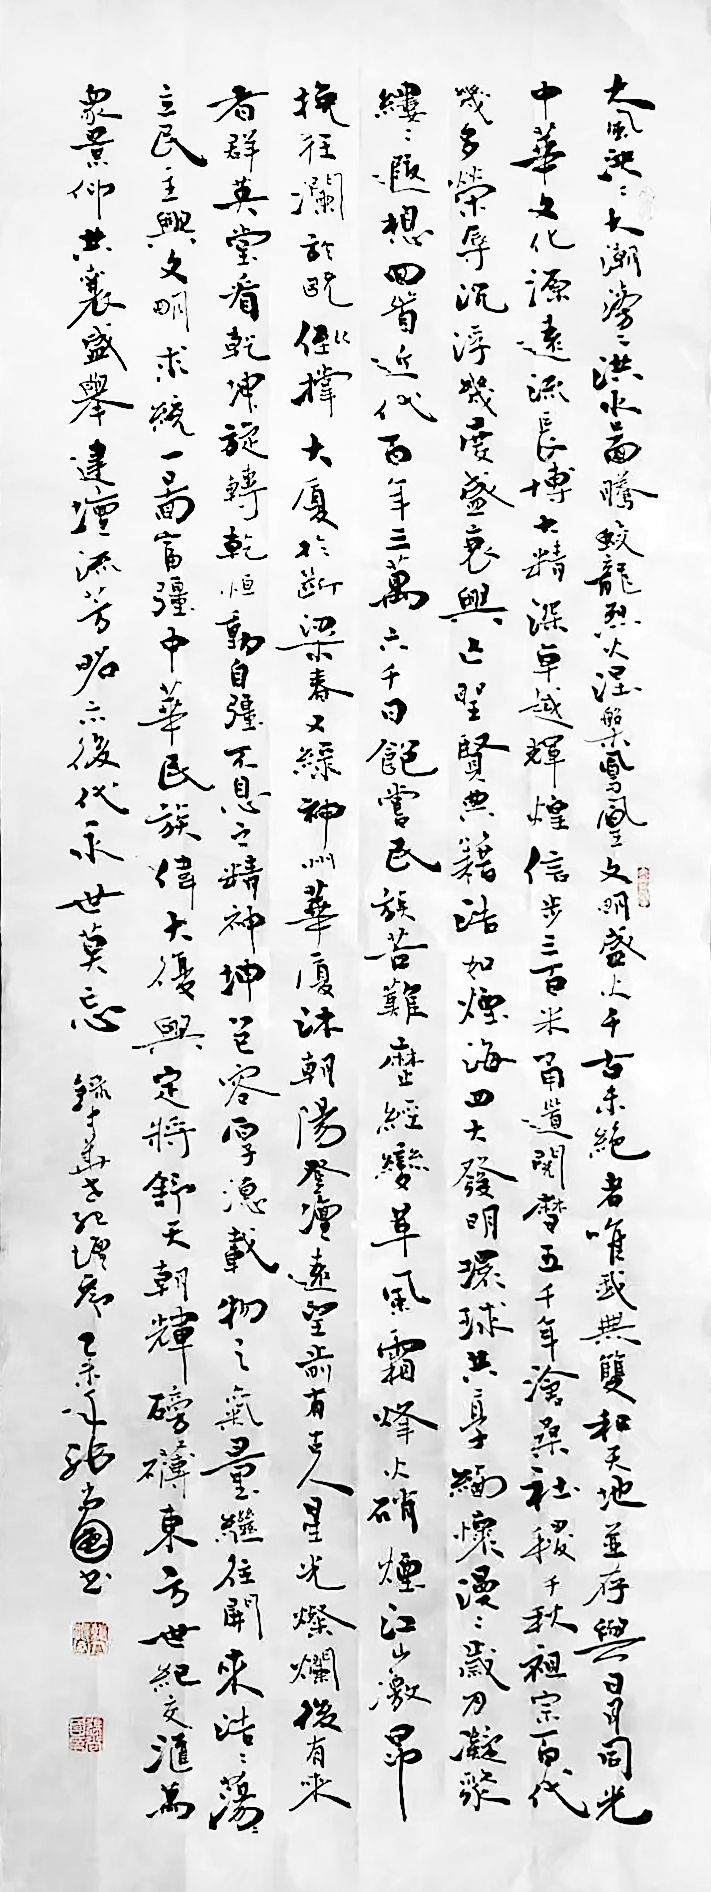 大風泱々大潮滂々洪水圖騰蛟龍烈火涅槃鳳凰文明聖火千古未絕者唯我無雙和天地並存與日月同光
中華文化源遠流長博大精深卓越輝煌信步三百米甬道閱歷五千年滄桑社稷千秋祖宗百代
幾多榮辱沉浮幾度盛衰興亡聖賢典籍浩如煙海四大發明環球共享緬懷漫々歲月凝聚
縷々遐想回首近代百年三萬六千日飽嘗民族苦難歷經變革風霜烽火硝煙江山激昂
挽狂瀾於既倒撐大廈於斷梁春又綠神州華廈沐朝陽登壇遠望前有古人星光燦爛後有來
者群英堂看乾坤旋轉乾恒動自彊不息之精神坤包容厚德載物之氣量繼往開來浩々蕩々
立民主興文明求統一圖富彊中華民族偉大復興定將舒天朝輝磅礴東方世紀交滙萬
眾景仰共襄盛舉建壇流芳昭示後代永世莫忘 錄中華世紀壇序 乙未年張